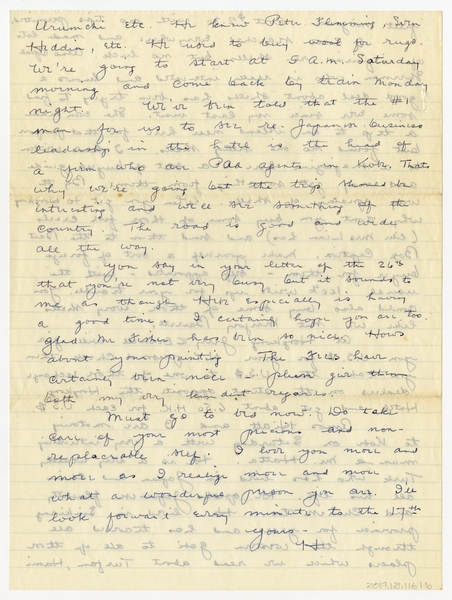 Urumchi etc. He knew Peter Flemming, Sven
Heddin, etc. He used to buy wool for rugs.
We're going to start at 5 A.M. Saturday
morning and come back by train Monday
night. We've been told that the #1
man for us to see re Japanese business
leadership in the hotel is the head of
a firm who are PAA agents in Kobe. Thats
why we're going but the trip should be
interesting and we'll see something of the
country. The road is good and wide
all the way.
You say in your letter of the 26th
that you're not very busy but it sounds to
me as though HKK especially is having
a good time. I certainly hope you are too.
glad Mr Fisher has been so nice. Hows
about your painting. The Ives have
certainly been nice - please give them
both my very kindest regards.
Must go to bed now. Do take
care of your most precious and non-
replaceable self. I love you more and
more as I realize more and more
what a wonderful person you are. I'll
look forward every minute to the 17th
Yours -
H
2009.51.116